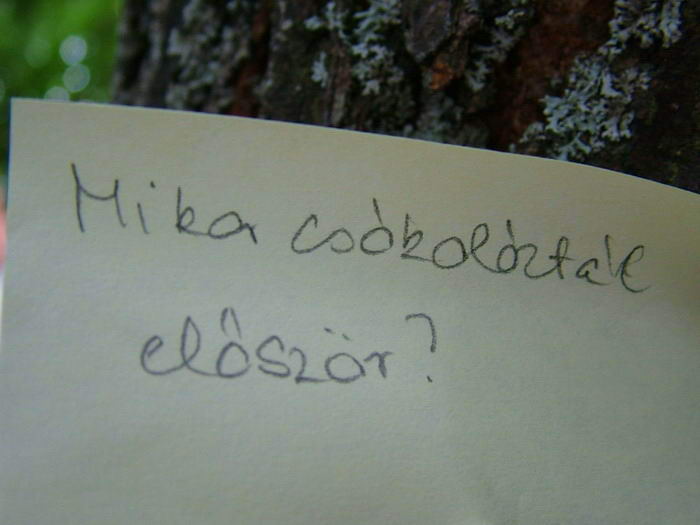 Mikor csókolóztak
először?